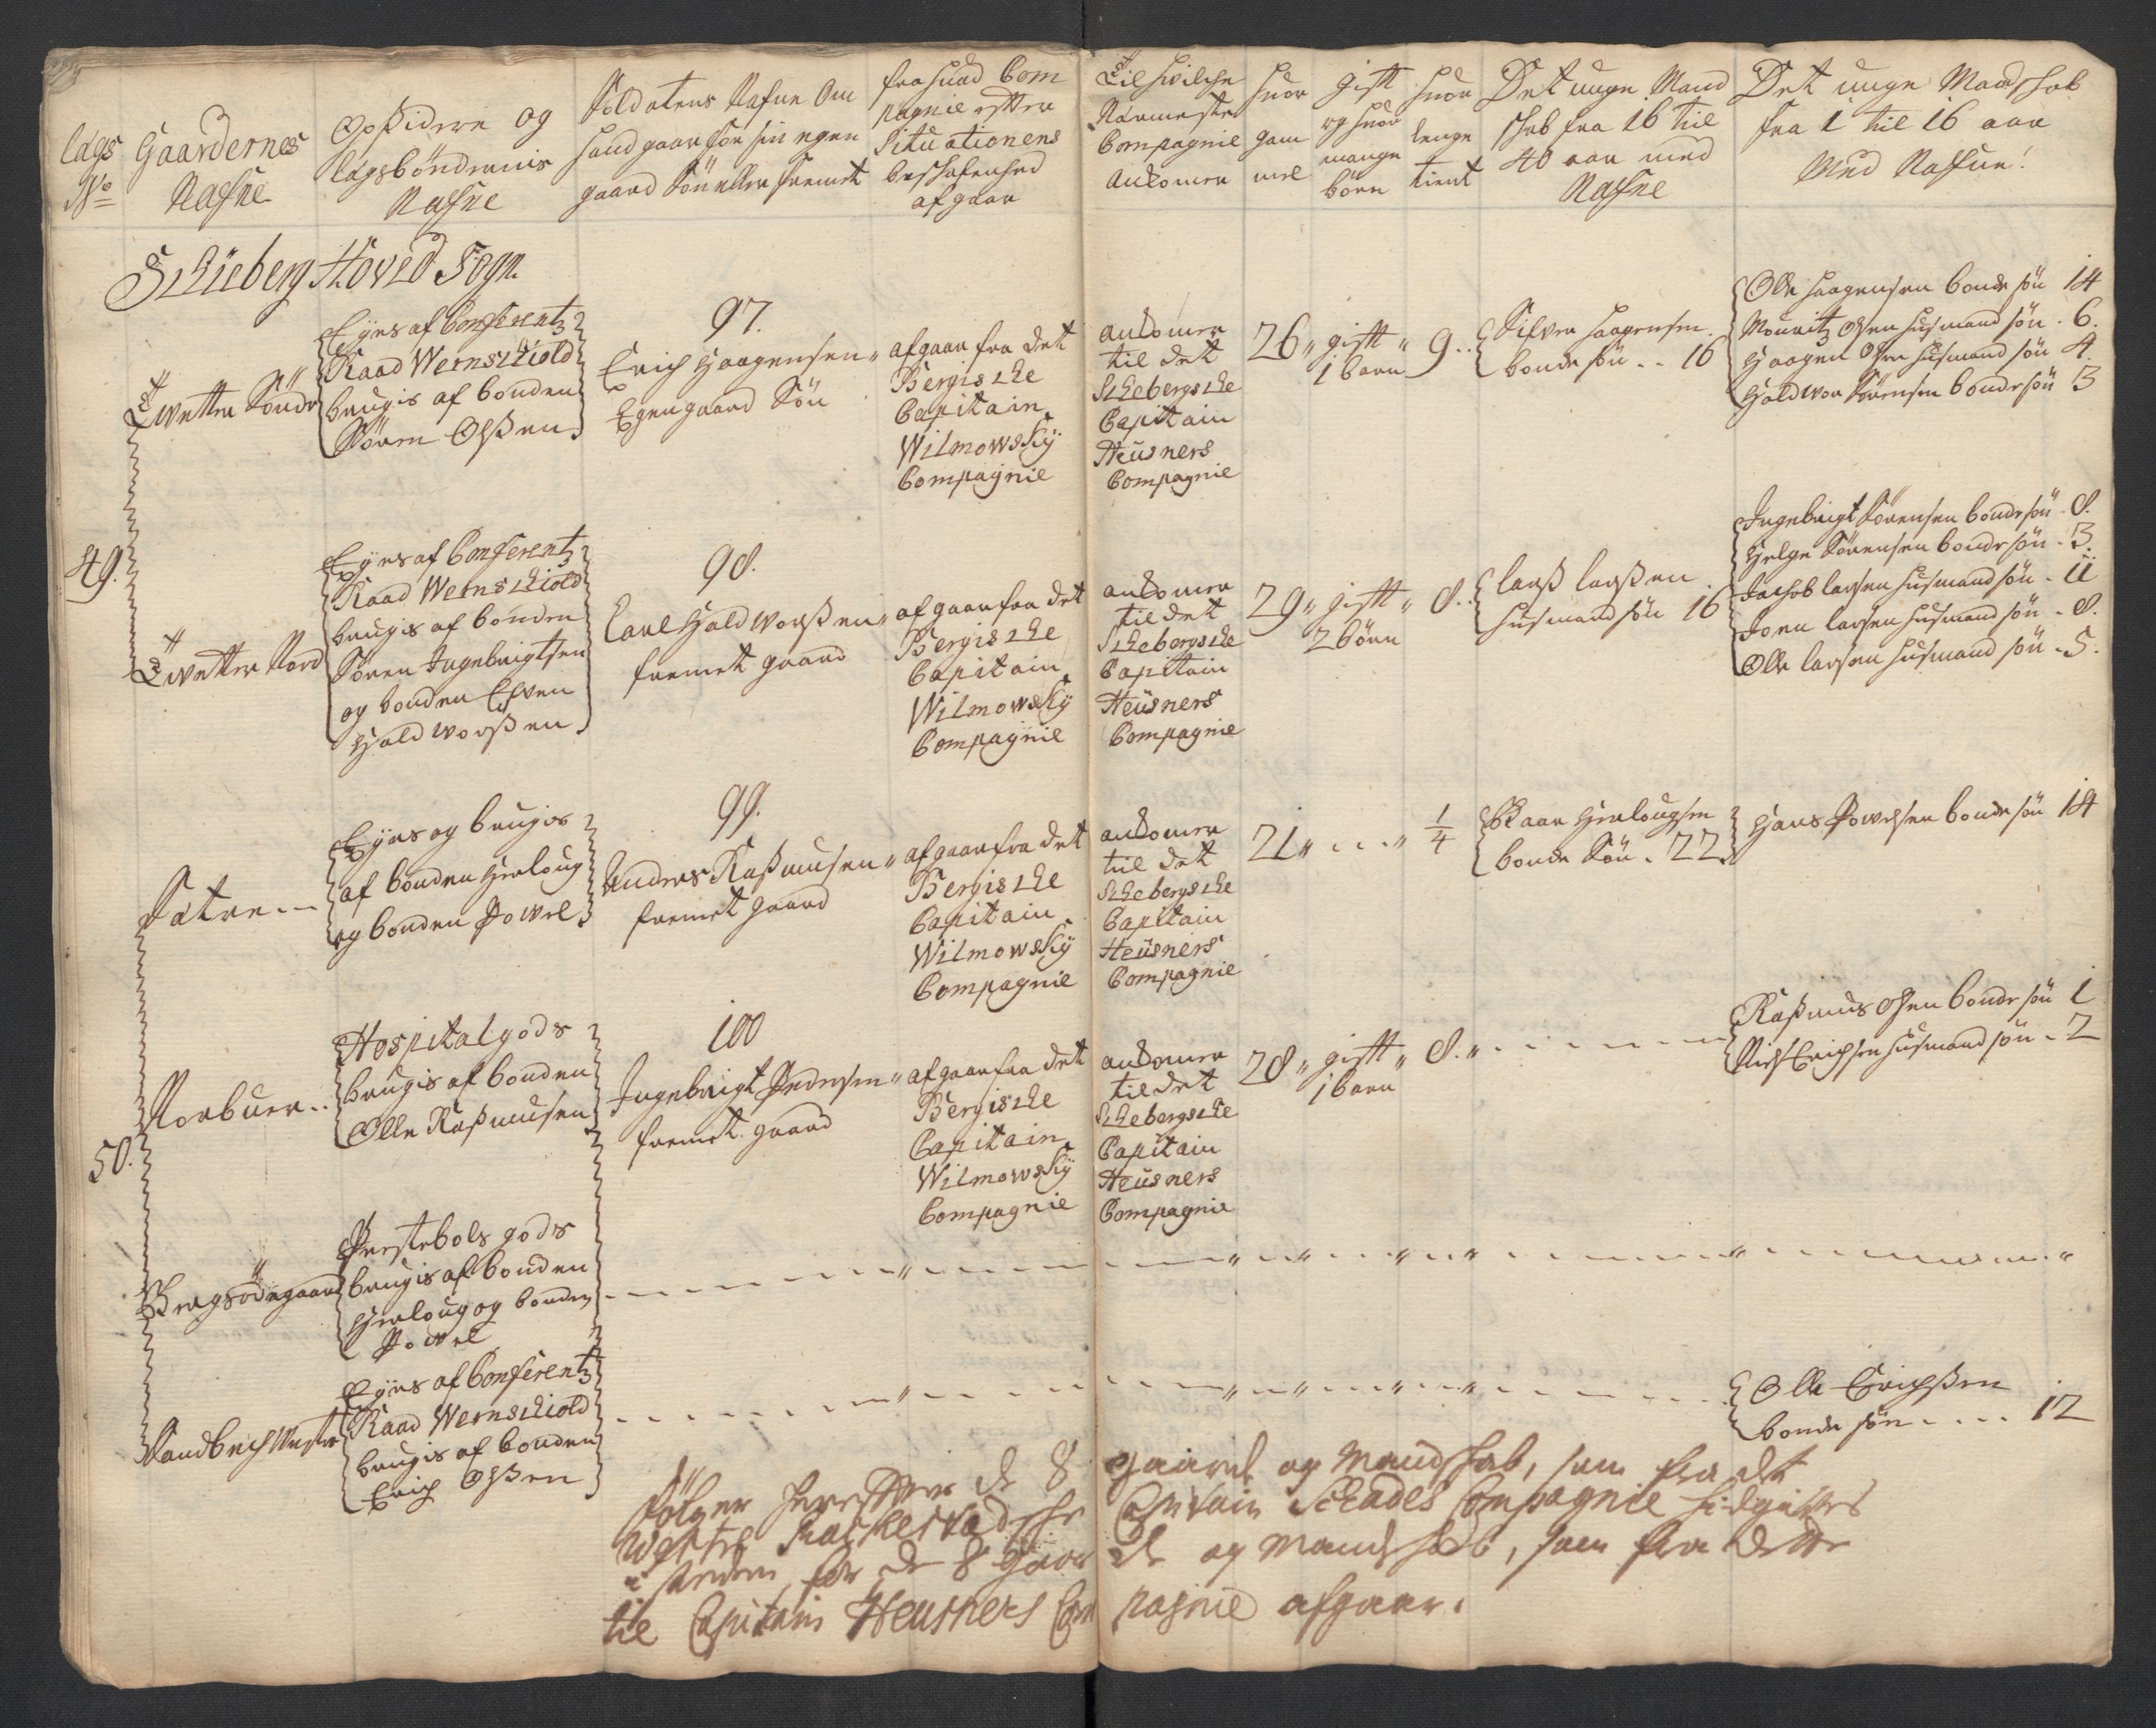 lägs
No
Gaardernes
Nafne
Opsidere og
lägsbøndernis
Nafne
Soldatens Nafne Om
hand gaar for sin egen
gaard Søn eller fremet
fra huad Com
pagnie efter
Situationens
beskafenhed
afgaar
Til hvilche
Nærmeste
Compagnie
ankomer
huor
gam
mel
gift
og huor
mange
børn
huor
lenge
tient
Det unge Mand
skab fra 16 til
40 aar med
Nafne
Det unge Mandskab
fra 1 til 16 aar
Med Nafne
Schieberg Hoved Sogn
49.
Twetter Söndr
Eÿes af Conferentz
Raad Wernschiold
brugis af bonden
Sören Olßen
97.
Erich Haagensen
Egen gaard Sön
afgaar fra det
Bergische
Capitain
Wilmowskÿ
Compagnie
ankomer
til det
Schebergsche
Capitain
Heusners
Compagnie
26 " gift " 9 ..
1 barn
Sifver Haagensen
bonde søn .. 16
Olle Haagensen bonde søn 14
Mouritz Olsen husmand søn . 6.
Haagen Olsen husmand søn 4.
Haldwor Sörensen bonde søn 3
Twetter Nord
Eÿes af Conferentz
Raad Wernschiold
brugis af bonden
Sören Ingebrigtsen
og bonden Efven
Haldworßen
98.
Carl Haldworßen
fremet gaard
afgaar fra det
Bergische
Capitain
Wilmowskÿ
Compagnie
ankomer
til det
Schebergsche
Capitain
Heusners
Compagnie
29 " gift " 8 ..
2 børn
Larß Larßen
husmand søn 16
Ingebrigt Sörensen bonde søn . 8.
Helge Sörensen bonde søn . 3.
Jachob Larsen husmand søn . 11
Joen Larsen husmand søn . 8.
Olle Larsen husmand søn . 5.
50.
Satre
Eÿes og brugis
af bonden Herloug
og bonden Powel
99.
Anders Raßmusen
fremet gaard
afgaar fra det
Bergische
Capitain
Wilmowskÿ
Compagnie
ankomer
til det
Schebergsche
Capitain
Heusners
Compagnie
21 " ... " 1/4
Baar Herlougsen
bonde Søn . 22
Hans Powelsen bonde søn 14
Norbuer ..
Hospitalgods
brugis af bonden
Olle Raßmusen
100
Ingebrigt Pedersen
fremet gaard
afgaar fra det
Bergische
Capitain
Wilmowskÿ
Compagnie
ankomer
til det
Schebergsche
Capitain
Heusners
Compagnie
28 " gift " 8. "
1 barn
Raßmus Olsen bonde søn 1
Niels Erichsen husmand søn . 2
Bergsödegaard
Prestebols gods
brugis af bonden
Herloug og bonden
Powel
Sandbech Westre
Eÿes af Conferentz
Raad Wernschiold
brugis af bonden
Erich Olßen
Olle Erichßen
bonde søn .... 12
Følger herefter de 8 gaarde og Mandskab, som fra det
Westre Capitain Schades Compagnie
i steden for de 8 Gaarde og Mandskab, som fra dette
til Capitain Heusners Compagnie afgaar.